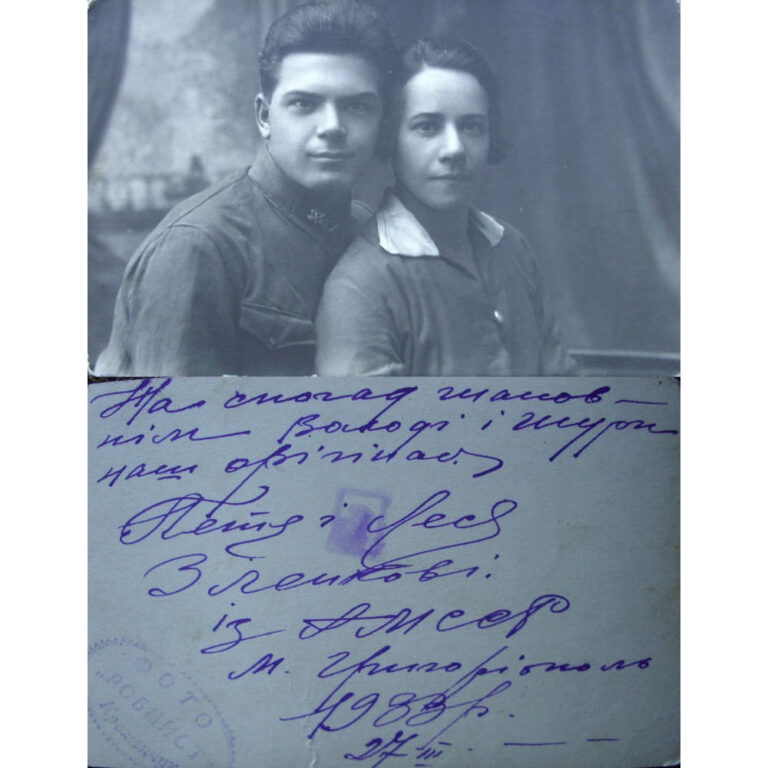 На спогад шанов-
нім Володі і Шури
наш орігінал.
Петя і Леся
Зіленкові.
із АМССР
м. Григоріополь
1933 р.
27 III
ФОТО
"РОБІТОС